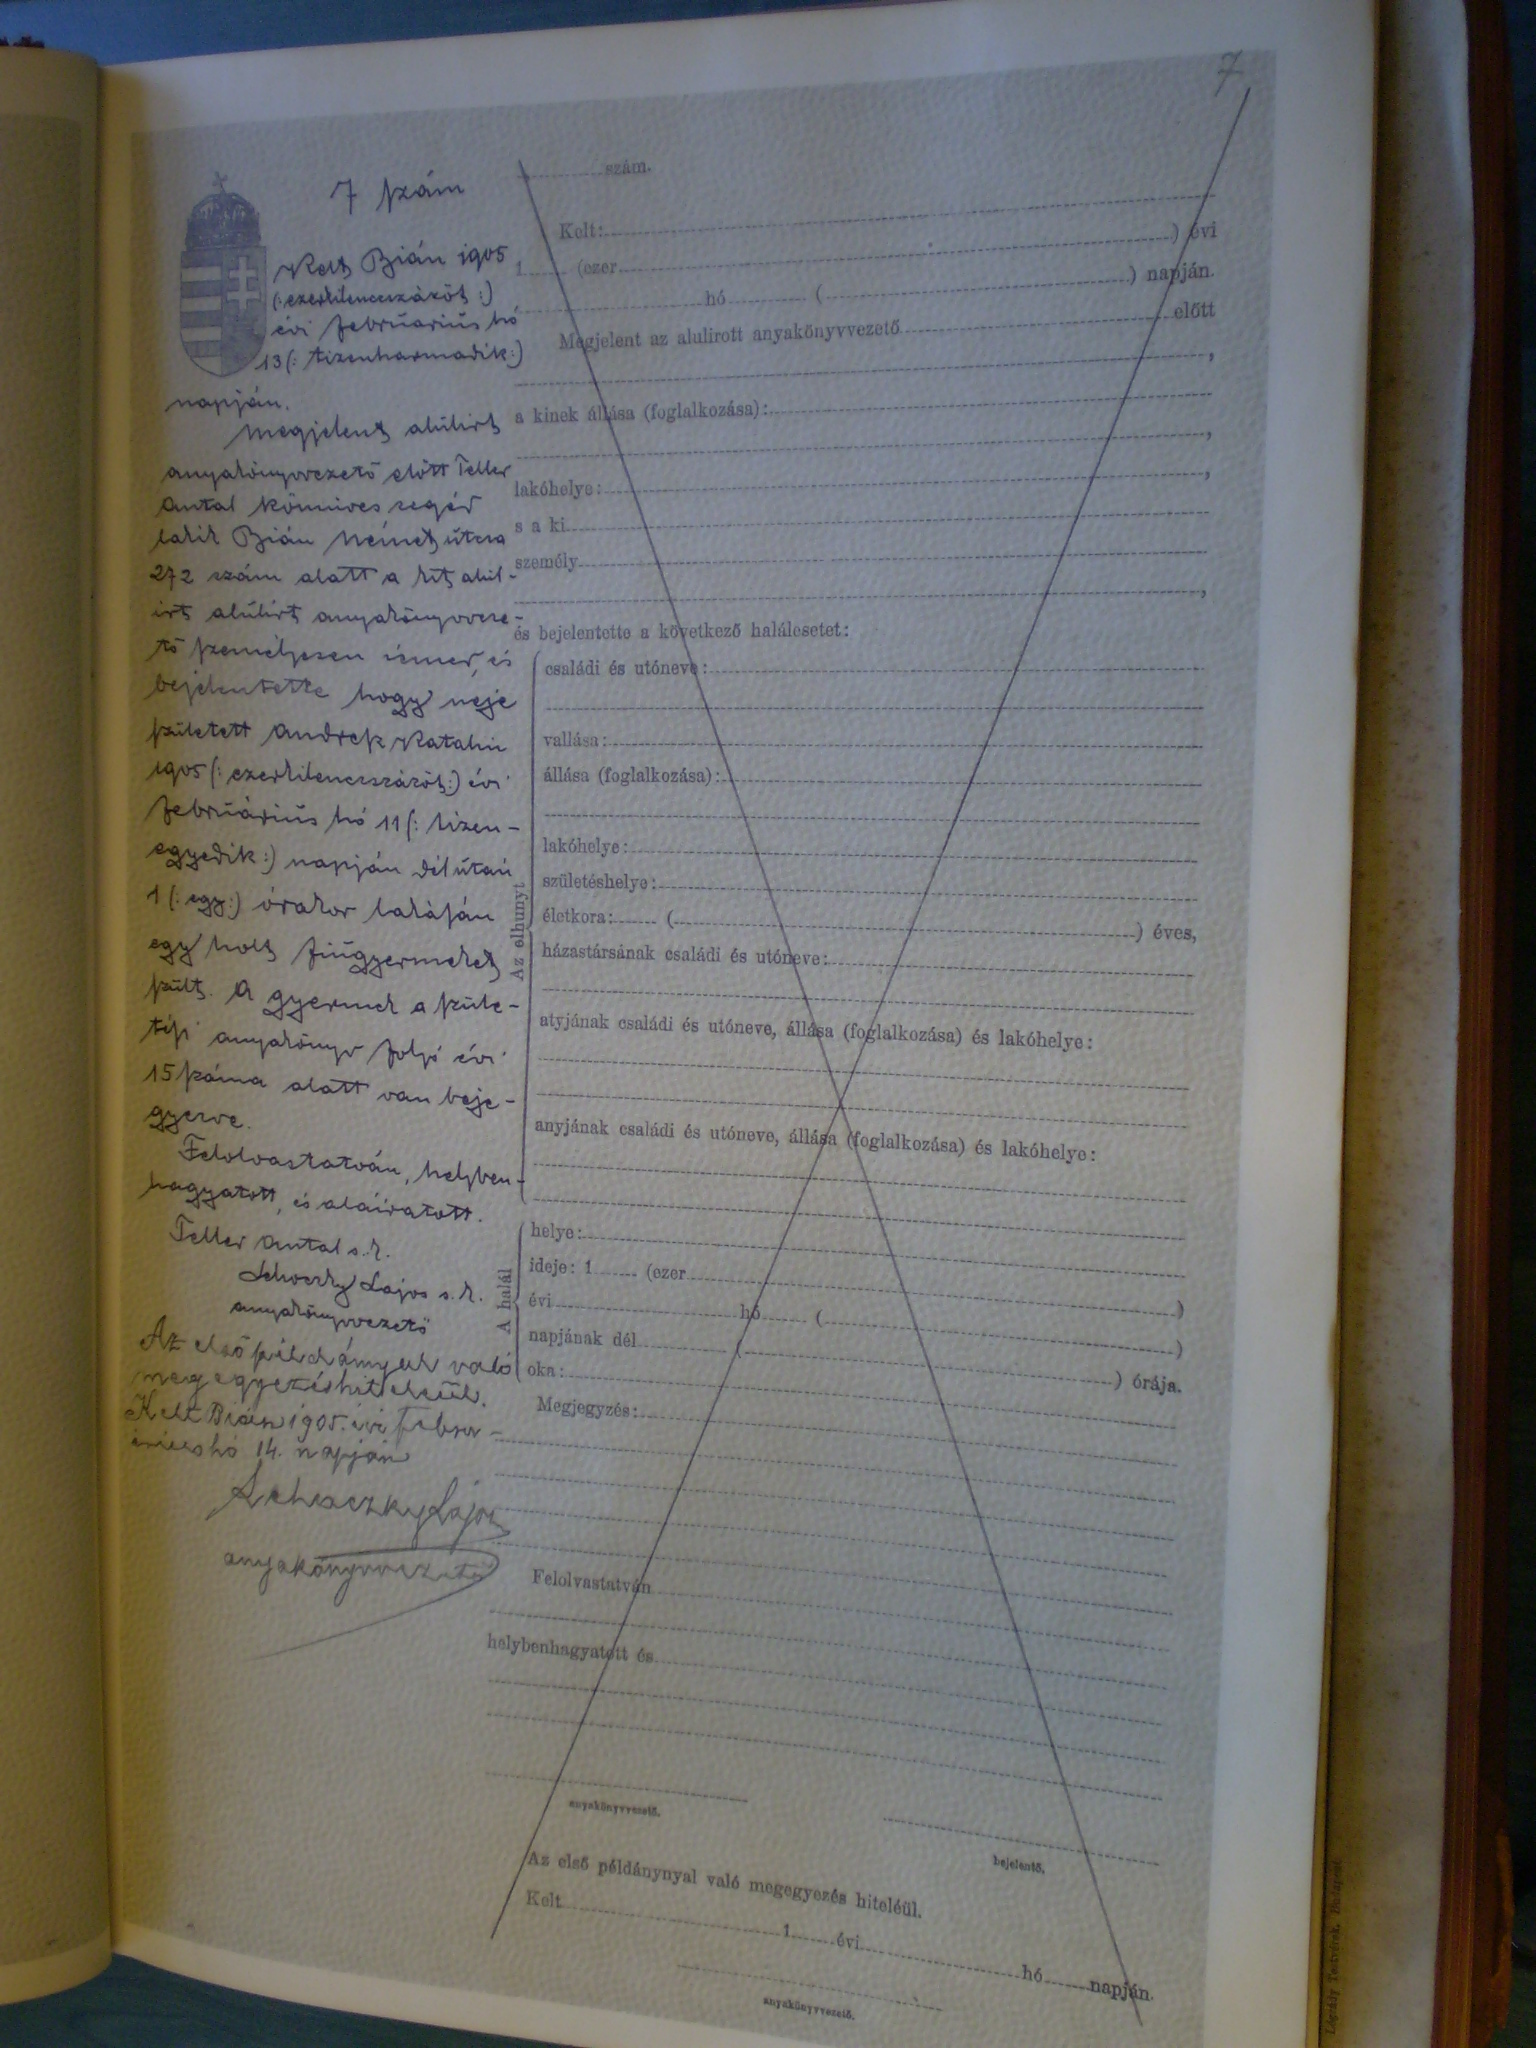 7
7 szám
Kelt Bián 1905
(: ezerkilencszázöt :)
évi februárius hó
13 (: tizenharmadik :)
napján.
Megjelent alúlirt
anyakönyvvezető előtt Teller
Antal kőmives segéd
lakik Bián Német útcza
272 szám alatt a kit alúl-
irt alúlirt anyakönyvveze-
tő személyesen ismer, és
bejelentette hogy neje
született Andresz Katalin
1905 (: ezerkilencszázöt :) évi
februárius hó 11 (: tizen-
egyedik :) napján délután
1 (: egy :) órakor lakásán
egy holt fiúgyermeket
szült. A gyermek a szüle-
tési anyakönyv folyó évi
15 száma alatt van beje-
gyezve.
Felolvastatván, helyben-
hagyatott, és aláiratott.
Teller Antal s. k.
Lajos s. k.
anyakönyvvezető
Az első példánynyal való
megegyezés hiteléül.
Kelt Bián 1905. évi Febru-
árius hó 14. napján
Lajos
anyakönyvvezető
szám.
Kelt:
1 (ezer ) évi
hó ( ) napján.
Megjelent az alulirott anyakönyvvezető előtt
,
a kinek állása (foglalkozása):
,
lakóhelye: ,
s a ki
személy
,
és bejelentette a következő halálesetet:
Az elhunyt
családi és utóneve:
vallása:
állása (foglalkozása):
lakóhelye:
születéshelye:
életkora: ( ) éves,
házastársának családi és utóneve:
atyjának családi és utóneve, állása (foglalkozása) és lakóhelye:
anyjának családi és utóneve, állása (foglalkozása) és lakóhelye:
A halál
helye:
ideje: 1 (ezer )
évi hó ( )
napjának dél ( ) órája.
oka:
Megjegyzés:
Felolvastatván
helybenhagyatott és
anyakönyvvezető.
bejelentő.
Az első példánynyal való megegyezés hiteléül.
Kelt 1 évi hó napján.
anyakönyvvezető.
Légrády Testvérek, Budapest.